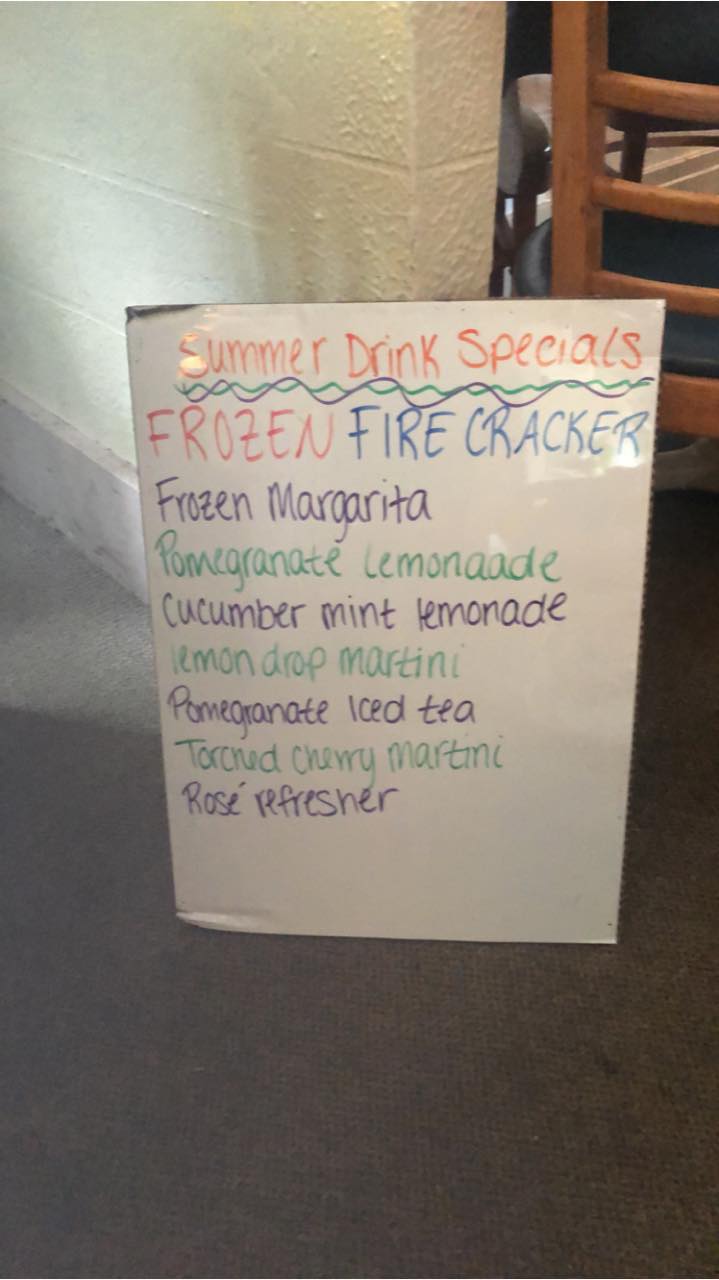 Summer Drink Specials
FROZEN FIRE CRACKER
Frozen Margarita
Pomegranate Lemonaade
Cucumber mint lemonade
lemon drop martini
Pomegranate Iced tea
Torched cherry martini
Rosé refresher